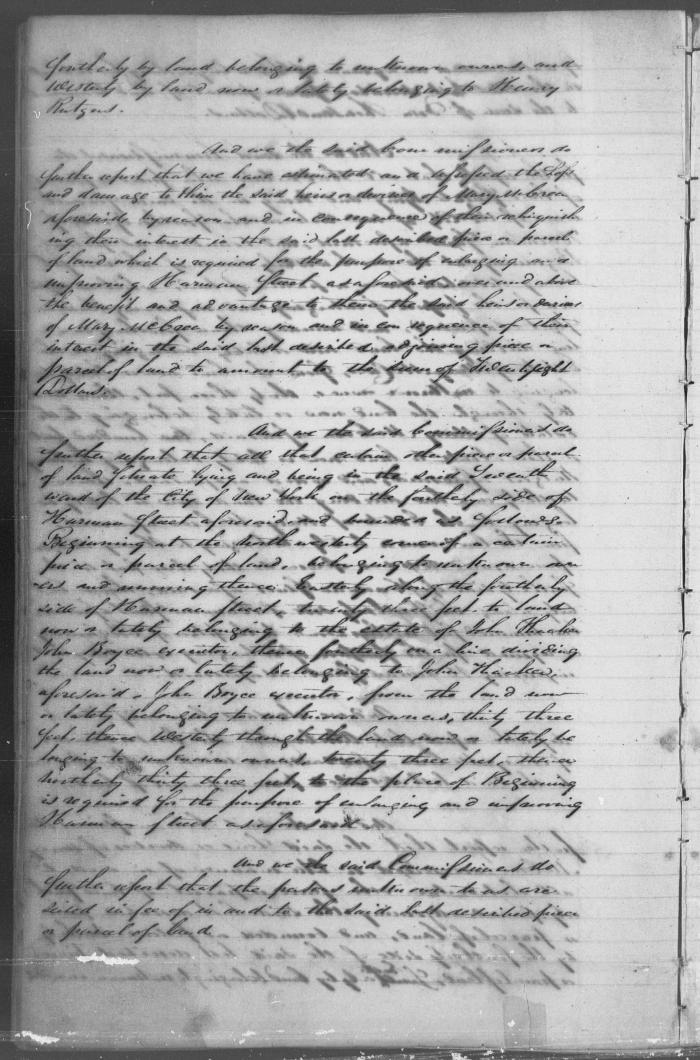 Southerly by land belonging to unknown owners, and
Westerly by land now or lately belonging to Henry
Rutgers.
And we the said Commissioners do
further report that we have estimated and assessed the Loss
and damage to them the said heirs or devisees of Mary McCrea
aforesaid, by reason and in consequence of their relinquish
ing their interest in the said last described piece or parcel
of land which is required for the purpose of enlarging and
improving Harman Street as aforesaid over and above
the benefit and advantage to them the said heirs or devisees
of Mary McCrea by reason and in consequence of their
interest in the said last described adjoining piece or
parcel of land to amount to the sum of Twenty eight
Dollars.
And we the said Commissioners do
further report that all that certain other piece or parcel
of land Situate lying and being in the said Seventh
ward of the City of New York on the Southerly side of
Harman Street aforesaid and bounded as follows.
Beginning at the North westerly corner of a certain
piece or parcel of land, belonging to unknown own
ers and running thence Easterly along the Southerly
side of Harman Street, twenty three feet to land
now or lately belonging to the estate of John
John Boyce executor, thence Southerly on a line dividing
the land now or lately belonging to John
aforesaid, John Boyce executor, from the land now
or lately belonging to unknown owners, thirty three
feet, thence Westerly through the land now or lately be
longing to unknown owners twenty three feet, thence
Northerly thirty three feet, to the place of Beginning
is required for the purpose of enlarging and improving
Harman Street as aforesaid.
And we the said Commissioners do
further report that the persons unknown to us are
seized in fee of in and to the said last described piece
or parcel of land.